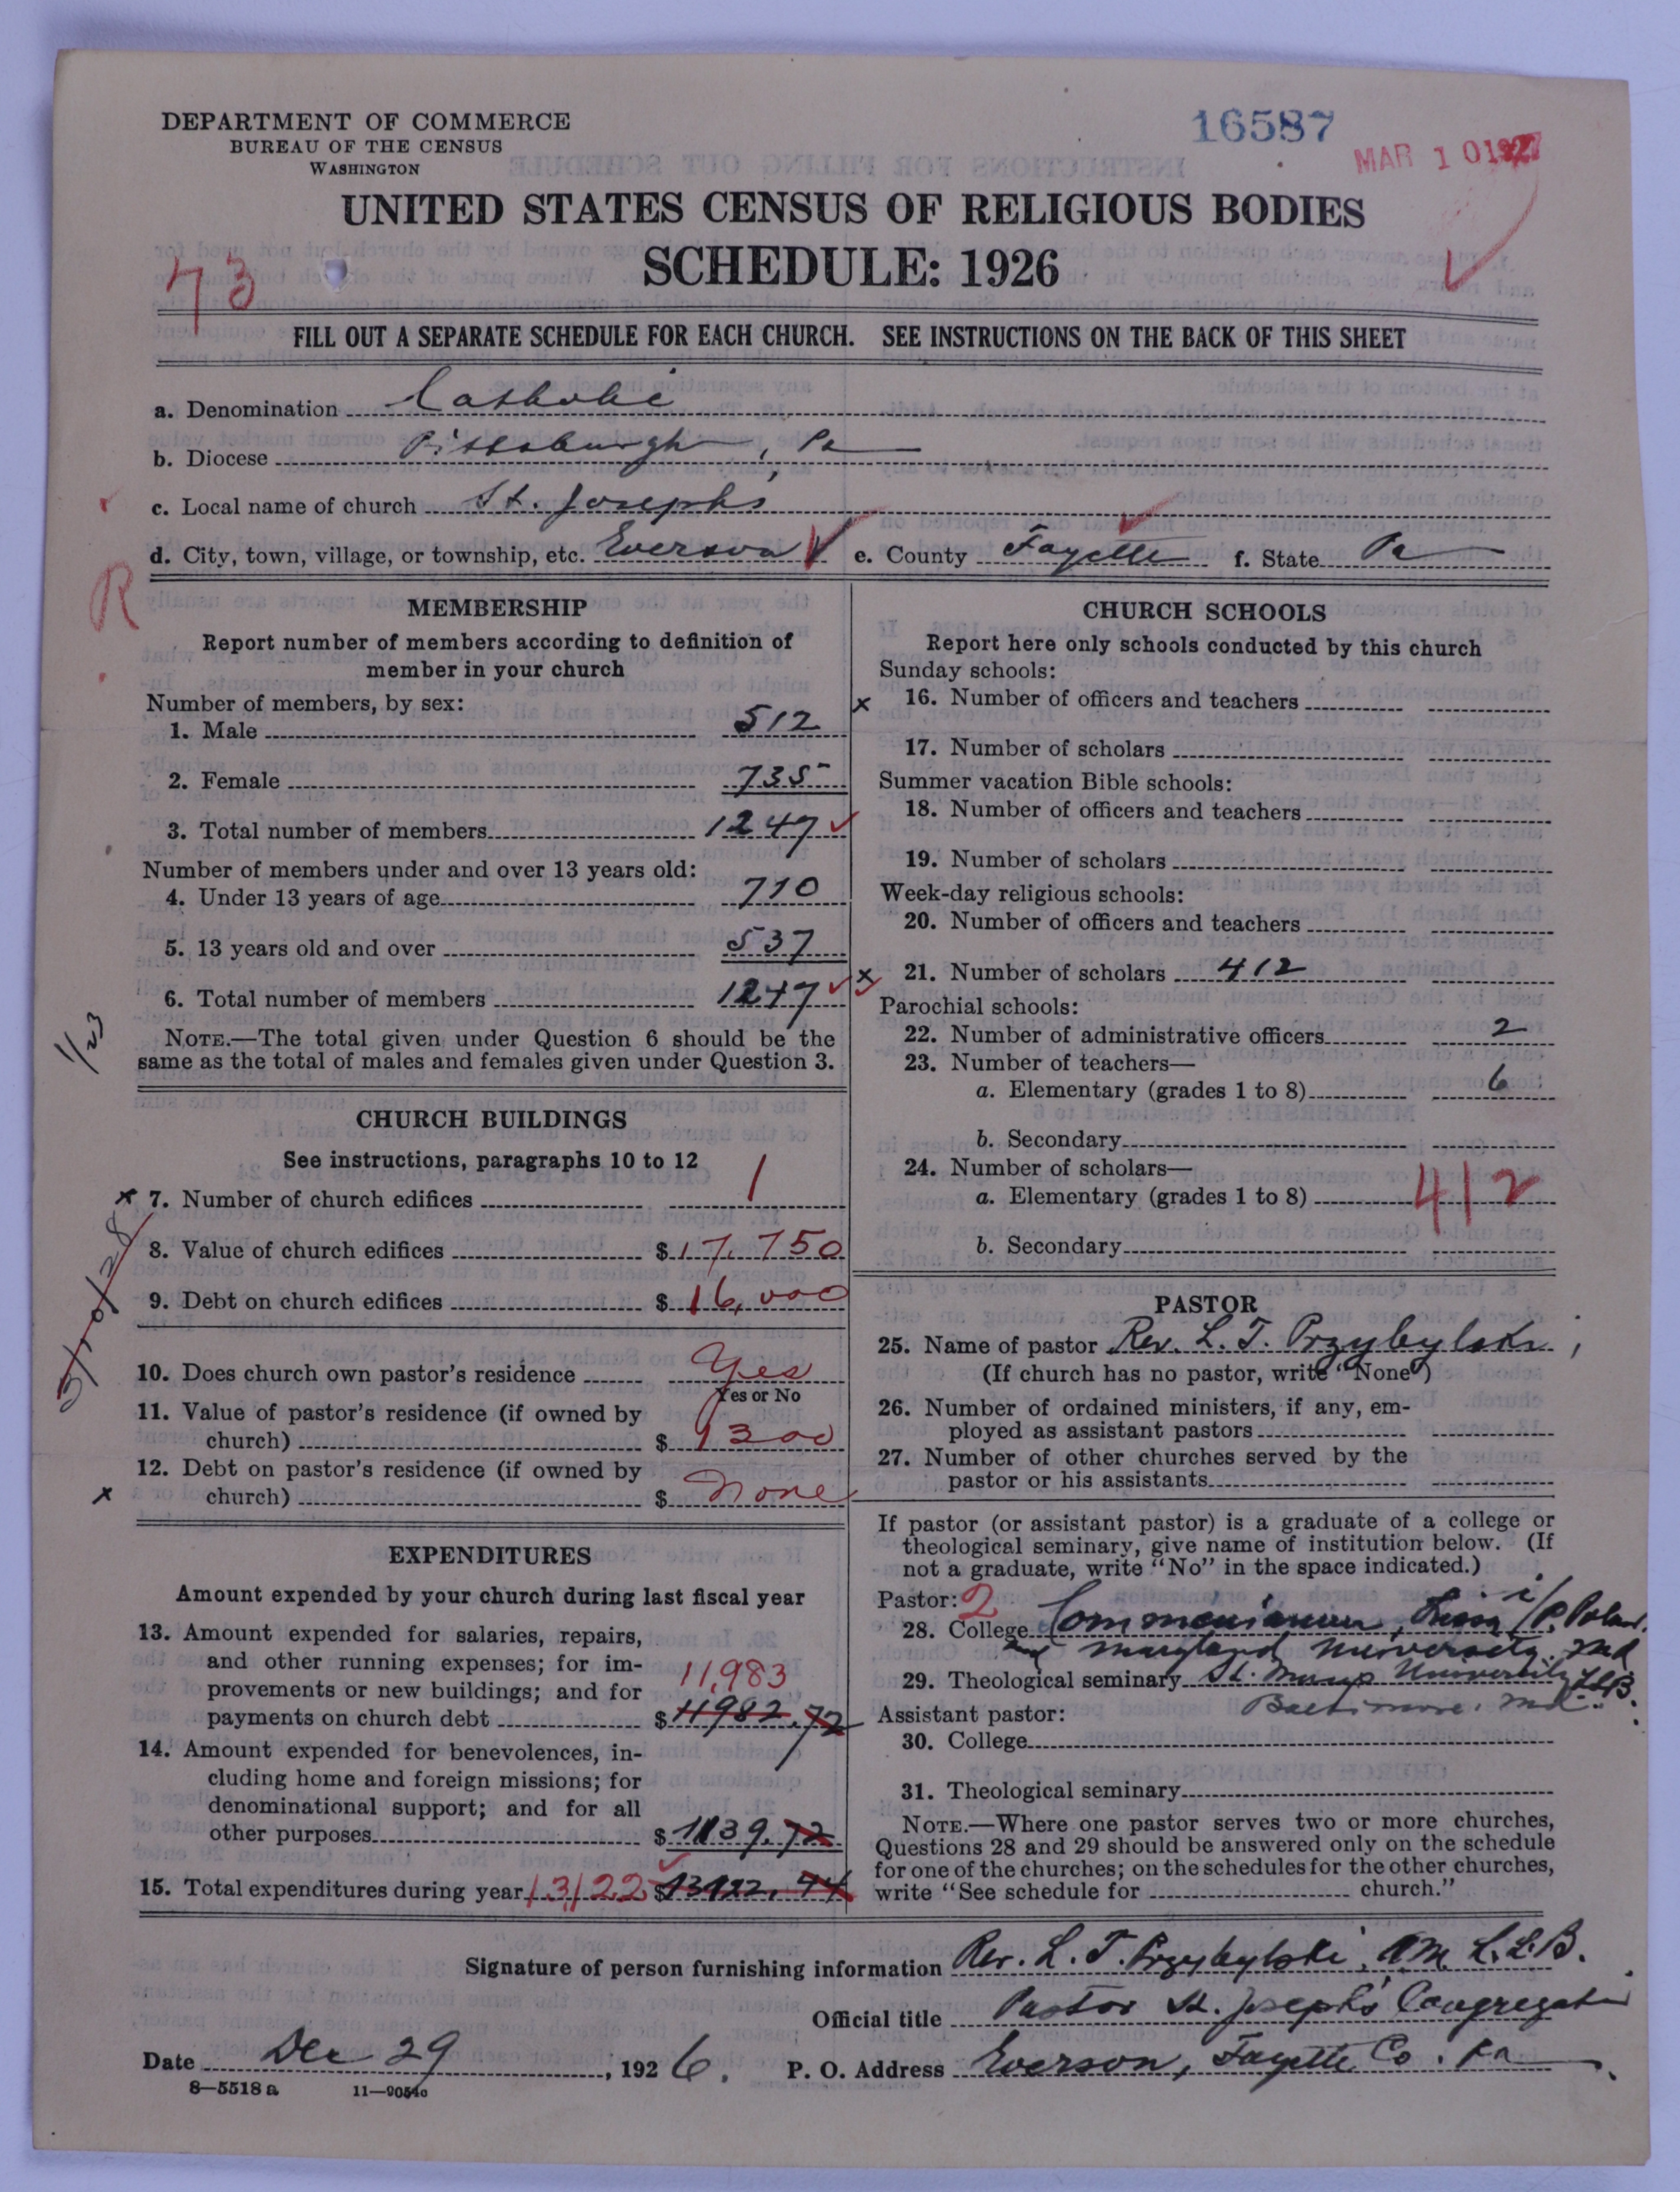 DEPARTMENT OF COMMERCE
BUREAU OF THE CENSUS
WASHINGTON
16587
MAR 10 1927
UNITED STATES CENSUS OF RELIGIOUS BODIES
SCHEDULE: 1926
73
FILL OUT A SEPARATE SCHEDULE FOR EACH CHURCH. SEE INSTRUCTIONS ON THE BACK OF THIS SHEET
a. Denomination Catholic
b. Diocese Pittsburgh, Pa
c. Local name of church St. Josephs
d. City, town, village, or township, etc. Everson e. County Fayette f. State Pa
R
MEMBERSHIP
Report number of members according to definition of
member in your church
Number of members, by sex:
1. Male 512
2. Female 735
3. Total number of members 1247
Number of members under and over 13 years old:
4. Under 13 years of age 710
5. 13 years old and over 537
6. Total number of members 1247
NOTE.—The total given under Question 6 should be the
same as the total of males and females given under Question 3.
CHURCH BUILDINGS
See instructions, paragraphs 10 to 12
x 7. Number of church edifices 1
8. Value of church edifices $17,750
9. Debt on church edifices $16,000
10. Does church own pastor's residence Yes
Yes or No
11. Value of pastor's residence (if owned by
church) $1300
12. Debt on pastor's residence (if owned by
x church) $None
EXPENDITURES
Amount expended by your church during last fiscal year
13. Amount expended for salaries, repairs,
and other running expenses; for im-
provements or new buildings; and for 11,983
payments on church debt $11982.72
14. Amount expended for benevolences, in-
cluding home and foreign missions; for
denominational support; and for all
other purposes $1139.72
15. Total expenditures during year 13,122 $13122.44
CHURCH SCHOOLS
Report here only schools conducted by this church
Sunday schools:
x 16. Number of officers and teachers
17. Number of scholars
Summer vacation Bible schools:
18. Number of officers and teachers
19. Number of scholars
Week-day religious schools:
20. Number of officers and teachers
x 21. Number of scholars 412
Parochial schools:
22. Number of administrative officers 2
23. Number of teachers—
a. Elementary (grades 1 to 8) 6
b. Secondary
24. Number of scholars—
a. Elementary (grades 1 to 8) 412
b. Secondary
PASTOR
25. Name of pastor Rev. L. T. Przybylski
(If church has no pastor, write "None")
26. Number of ordained ministers, if any, em-
ployed as assistant pastors
27. Number of other churches served by the
pastor or his assistants
If pastor (or assistant pastor) is a graduate of a college or
theological seminary, give name of institution below. (If
not a graduate, write "No" in the space indicated.)
Pastor: 2
28. College
and Maryland University. Md
29. Theological seminary St. Marys University LLB.
Baltimore. Md.
Assistant pastor:
30. College
31. Theological seminary
NOTE.—Where one pastor serves two or more churches,
Questions 28 and 29 should be answered only on the schedule
for one of the churches; on the schedules for the other churches,
write "See schedule for church."
Signature of person furnishing information Rev. L. T. Przybylski, A.M. L.L.B.
Official title Pastor St. Joseph's Congregation
Date Dec 29, 1926. P. O. Address Everson, Fayette Co. Pa
8—5518 a 11—9054a